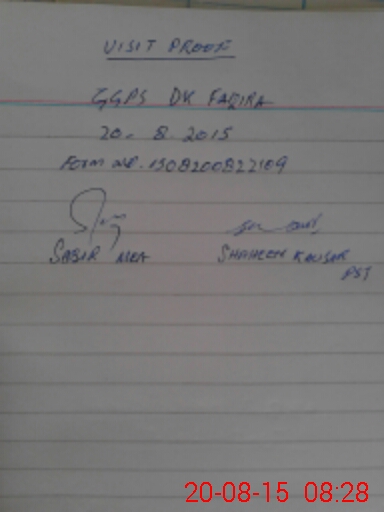 VISIT PROOF
GGPS DK FAQIRA
20. 8. 2015
FORM NO. 1508200822109
SABIR MEA
SHAHEEN KAUSAR
PST
20-08-15 08:28